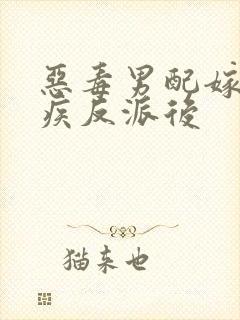 惡毒男配嫁
疾反派後
猫来也